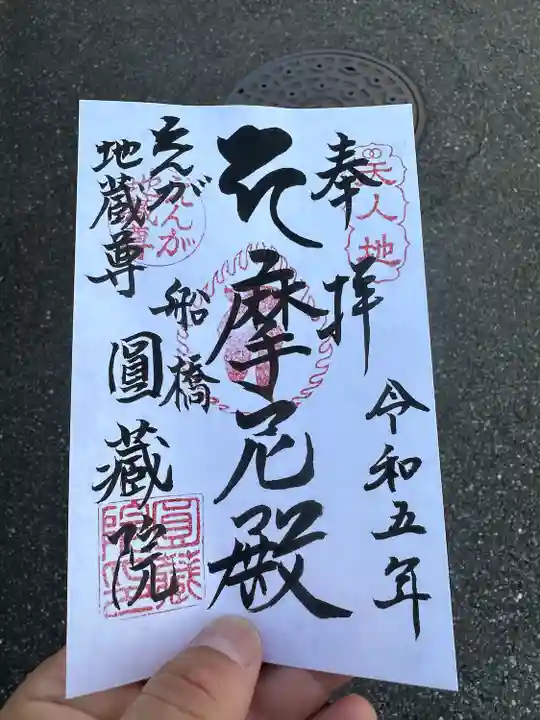 天人地
奉拝
令和五年
摩尼殿
えんが
地蔵尊
えんが
地蔵尊
船橋
圓蔵院